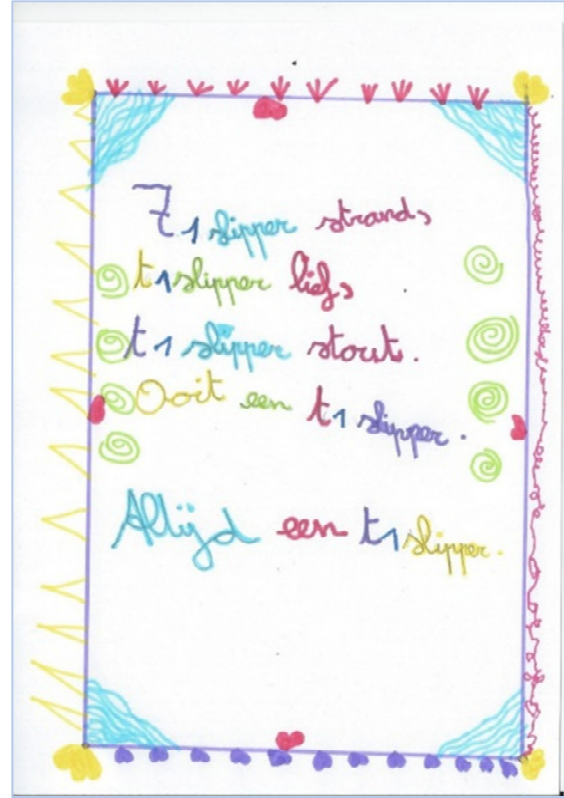 T1 slipper strands
t1slipper liefs
t1 slipper stout.
Ooit een t1 slipper.
Altijd een t1 slipper.